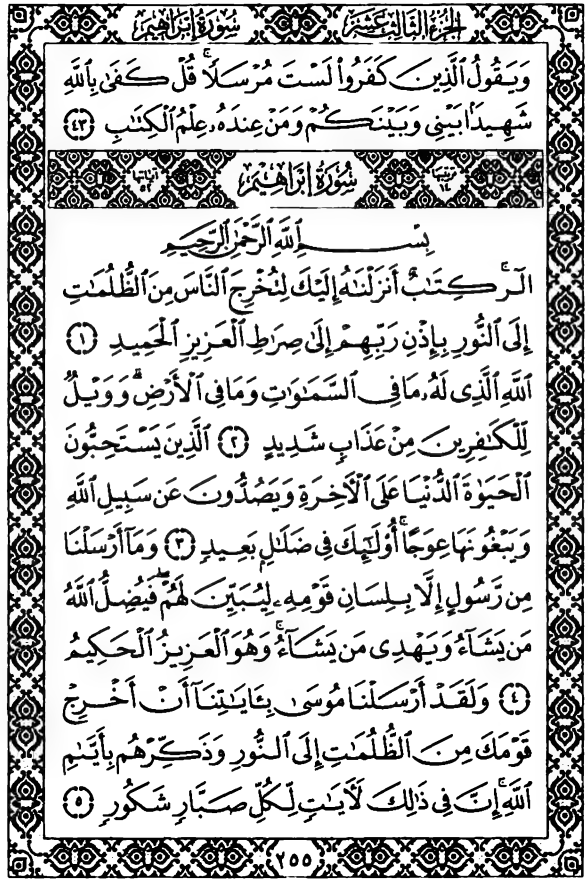 سُورَةُ إِبْرَاهِيم الجُزْءُ الثَّالِثَ عَشَرَ
وَيَقُولُ ٱلَّذِينَ كَفَرُوا۟ لَسْتَ مُرْسَلًا ۚ قُلْ كَفَىٰ بِٱللَّهِ
شَهِيدًۢا بَيْنِى وَبَيْنَكُمْ وَمَنْ عِندَهُۥ عِلْمُ ٱلْكِتَـٰبِ ﴿٤٣﴾
ترتيبها ١٤ سُورَةُ إِبْرَاهِيمَ آياتها ٥٢
بِسْمِ ٱللَّهِ ٱلرَّحْمَـٰنِ ٱلرَّحِيمِ
الٓر ۚ كِتَـٰبٌ أَنزَلْنَـٰهُ إِلَيْكَ لِتُخْرِجَ ٱلنَّاسَ مِنَ ٱلظُّلُمَـٰتِ
إِلَى ٱلنُّورِ بِإِذْنِ رَبِّهِمْ إِلَىٰ صِرَٰطِ ٱلْعَزِيزِ ٱلْحَمِيدِ ﴿١﴾
ٱللَّهِ ٱلَّذِى لَهُۥ مَا فِى ٱلسَّمَـٰوَٰتِ وَمَا فِى ٱلْأَرْضِ ۗ وَوَيْلٌ
لِّلْكَـٰفِرِينَ مِنْ عَذَابٍ شَدِيدٍ ﴿٢﴾ ٱلَّذِينَ يَسْتَحِبُّونَ
ٱلْحَيَوٰةَ ٱلدُّنْيَا عَلَى ٱلْـَٔاخِرَةِ وَيَصُدُّونَ عَن سَبِيلِ ٱللَّهِ
وَيَبْغُونَهَا عِوَجًا ۚ أُو۟لَـٰٓئِكَ فِى ضَلَـٰلٍۭ بَعِيدٍ ﴿٣﴾ وَمَآ أَرْسَلْنَا
مِن رَّسُولٍ إِلَّا بِلِسَانِ قَوْمِهِۦ لِيُبَيِّنَ لَهُمْ ۖ فَيُضِلُّ ٱللَّهُ
مَن يَشَآءُ وَيَهْدِى مَن يَشَآءُ ۚ وَهُوَ ٱلْعَزِيزُ ٱلْحَكِيمُ
﴿٤﴾ وَلَقَدْ أَرْسَلْنَا مُوسَىٰ بِـَٔايَـٰتِنَآ أَنْ أَخْرِجْ
قَوْمَكَ مِنَ ٱلظُّلُمَـٰتِ إِلَى ٱلنُّورِ وَذَكِّرْهُم بِأَيَّىٰمِ
ٱللَّهِ ۚ إِنَّ فِى ذَٰلِكَ لَـَٔايَـٰتٍ لِّكُلِّ صَبَّارٍ شَكُورٍ ﴿٥﴾
٢٥٥